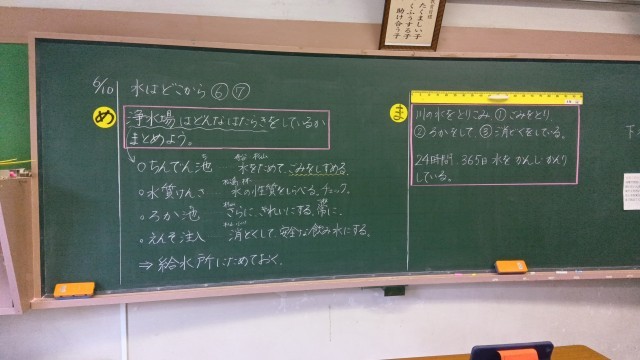 たくましい子
くふうする子
助け合う子
6/10 水はどこから ⑥ ⑦
め
浄水場はどんなはたらきをしているか
まとめよう。
○ちんでん池 水をためて、ごみをしずめる。
○水質けんさ 水の性質をしらべる。チェック。
○ろか池 さらに、きれいにする。常に、
○えんそ注入 消どくして、安全な飲み水にする。
⇒給水所にためておく。
ま
川の水をとりこみ、①ごみをとり、
②ろかをして、③消どくをしている。
24時間、365日 水を かんし・かんり
している。
下